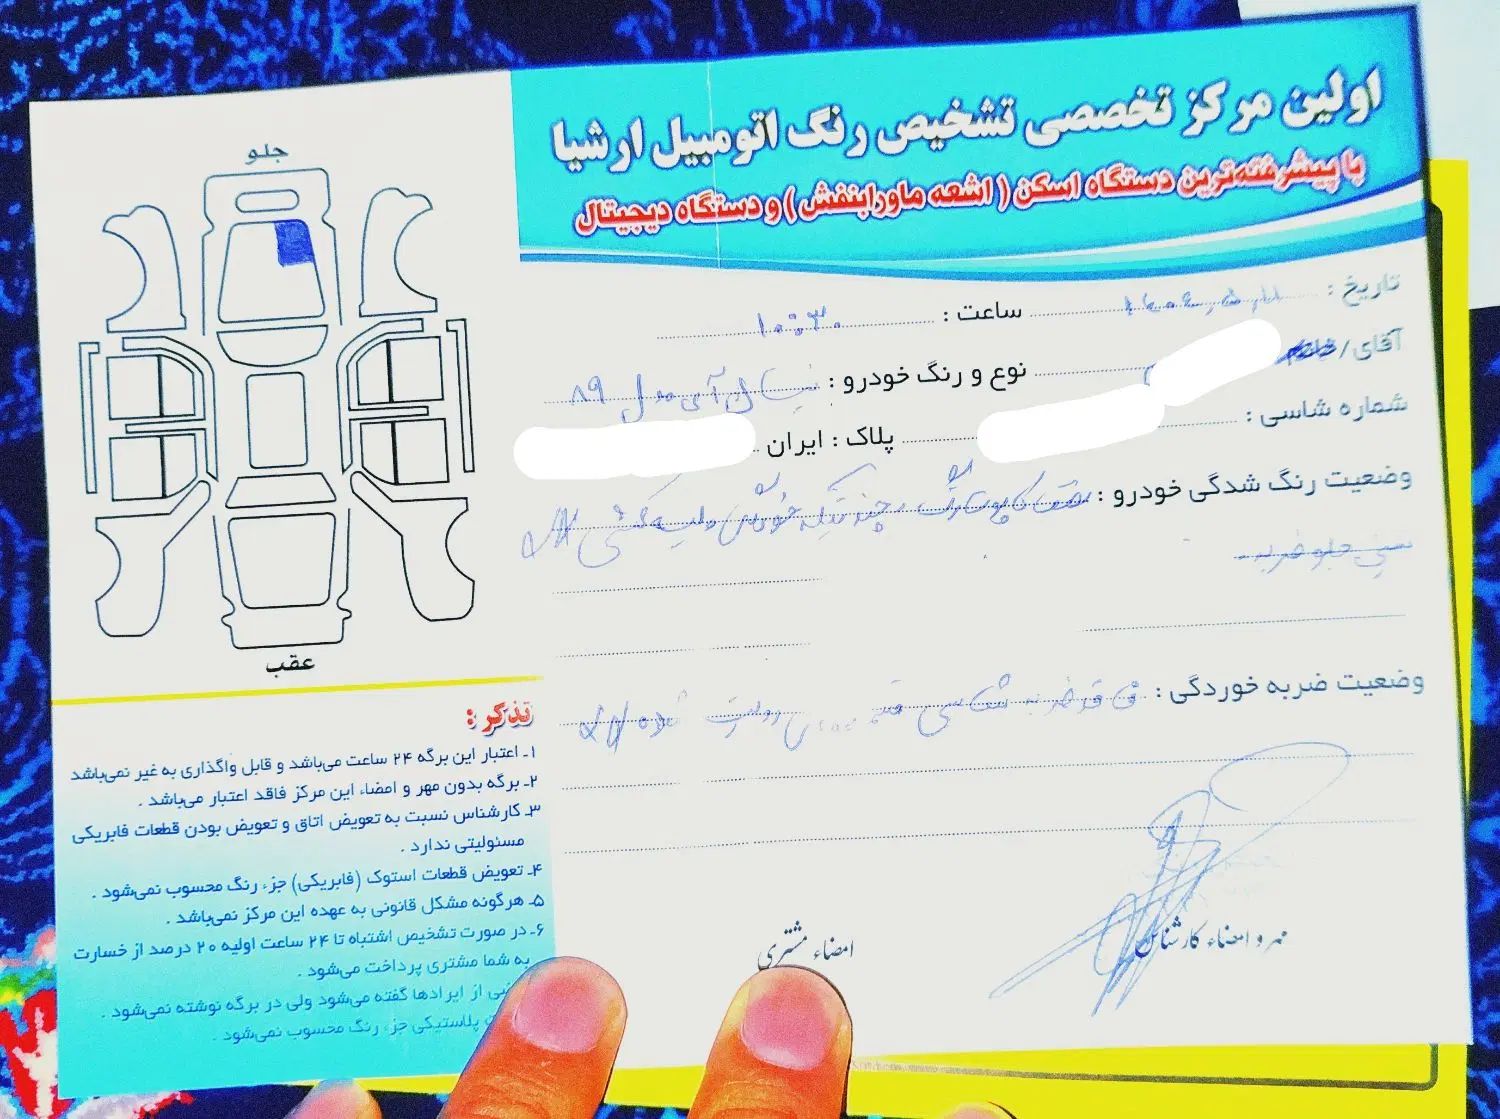 اولین مرکز تخصصی تشخیص رنگ اتومبیل ارشیا
با پیشرفته‌ترین دستگاه اسکن ( اشعه ماورابنفش ) و دستگاه دیجیتال
جلو
عقب
تاریخ :
ساعت : ۱۰:۳۰
آقای/خانم
نوع و رنگ خودرو : مدل ۸۹
شماره شاسی :
پلاک : ایران
وضعیت رنگ شدگی خودرو :
سینی جلو ضربه
وضعیت ضربه خوردگی : فاقد ضربه شاسی شده
مهر و امضاء کارشناس
امضاء مشتری
تذکر :
۱ـ اعتبار این برگه ۲۴ ساعت می‌باشد و قابل واگذاری به غیر نمی‌باشد
۲ـ برگه بدون مهر و امضاء این مرکز فاقد اعتبار می‌باشد .
۳ـ کارشناس نسبت به تعویض اتاق و تعویض بودن قطعات فابریکی
مسئولیتی ندارد .
۴ـ تعویض قطعات استوک (فابریکی) جزء رنگ محسوب نمی‌شود .
۵ـ هرگونه مشکل قانونی به عهده این مرکز نمی‌باشد .
۶ـ در صورت تشخیص اشتباه تا ۲۴ ساعت اولیه ۲۰ درصد از خسارت
به شما مشتری پرداخت می‌شود .
از ایرادها گفته می‌شود ولی در برگه نوشته نمی‌شود .
پلاستیکی جزء رنگ محسوب نمی‌شود .